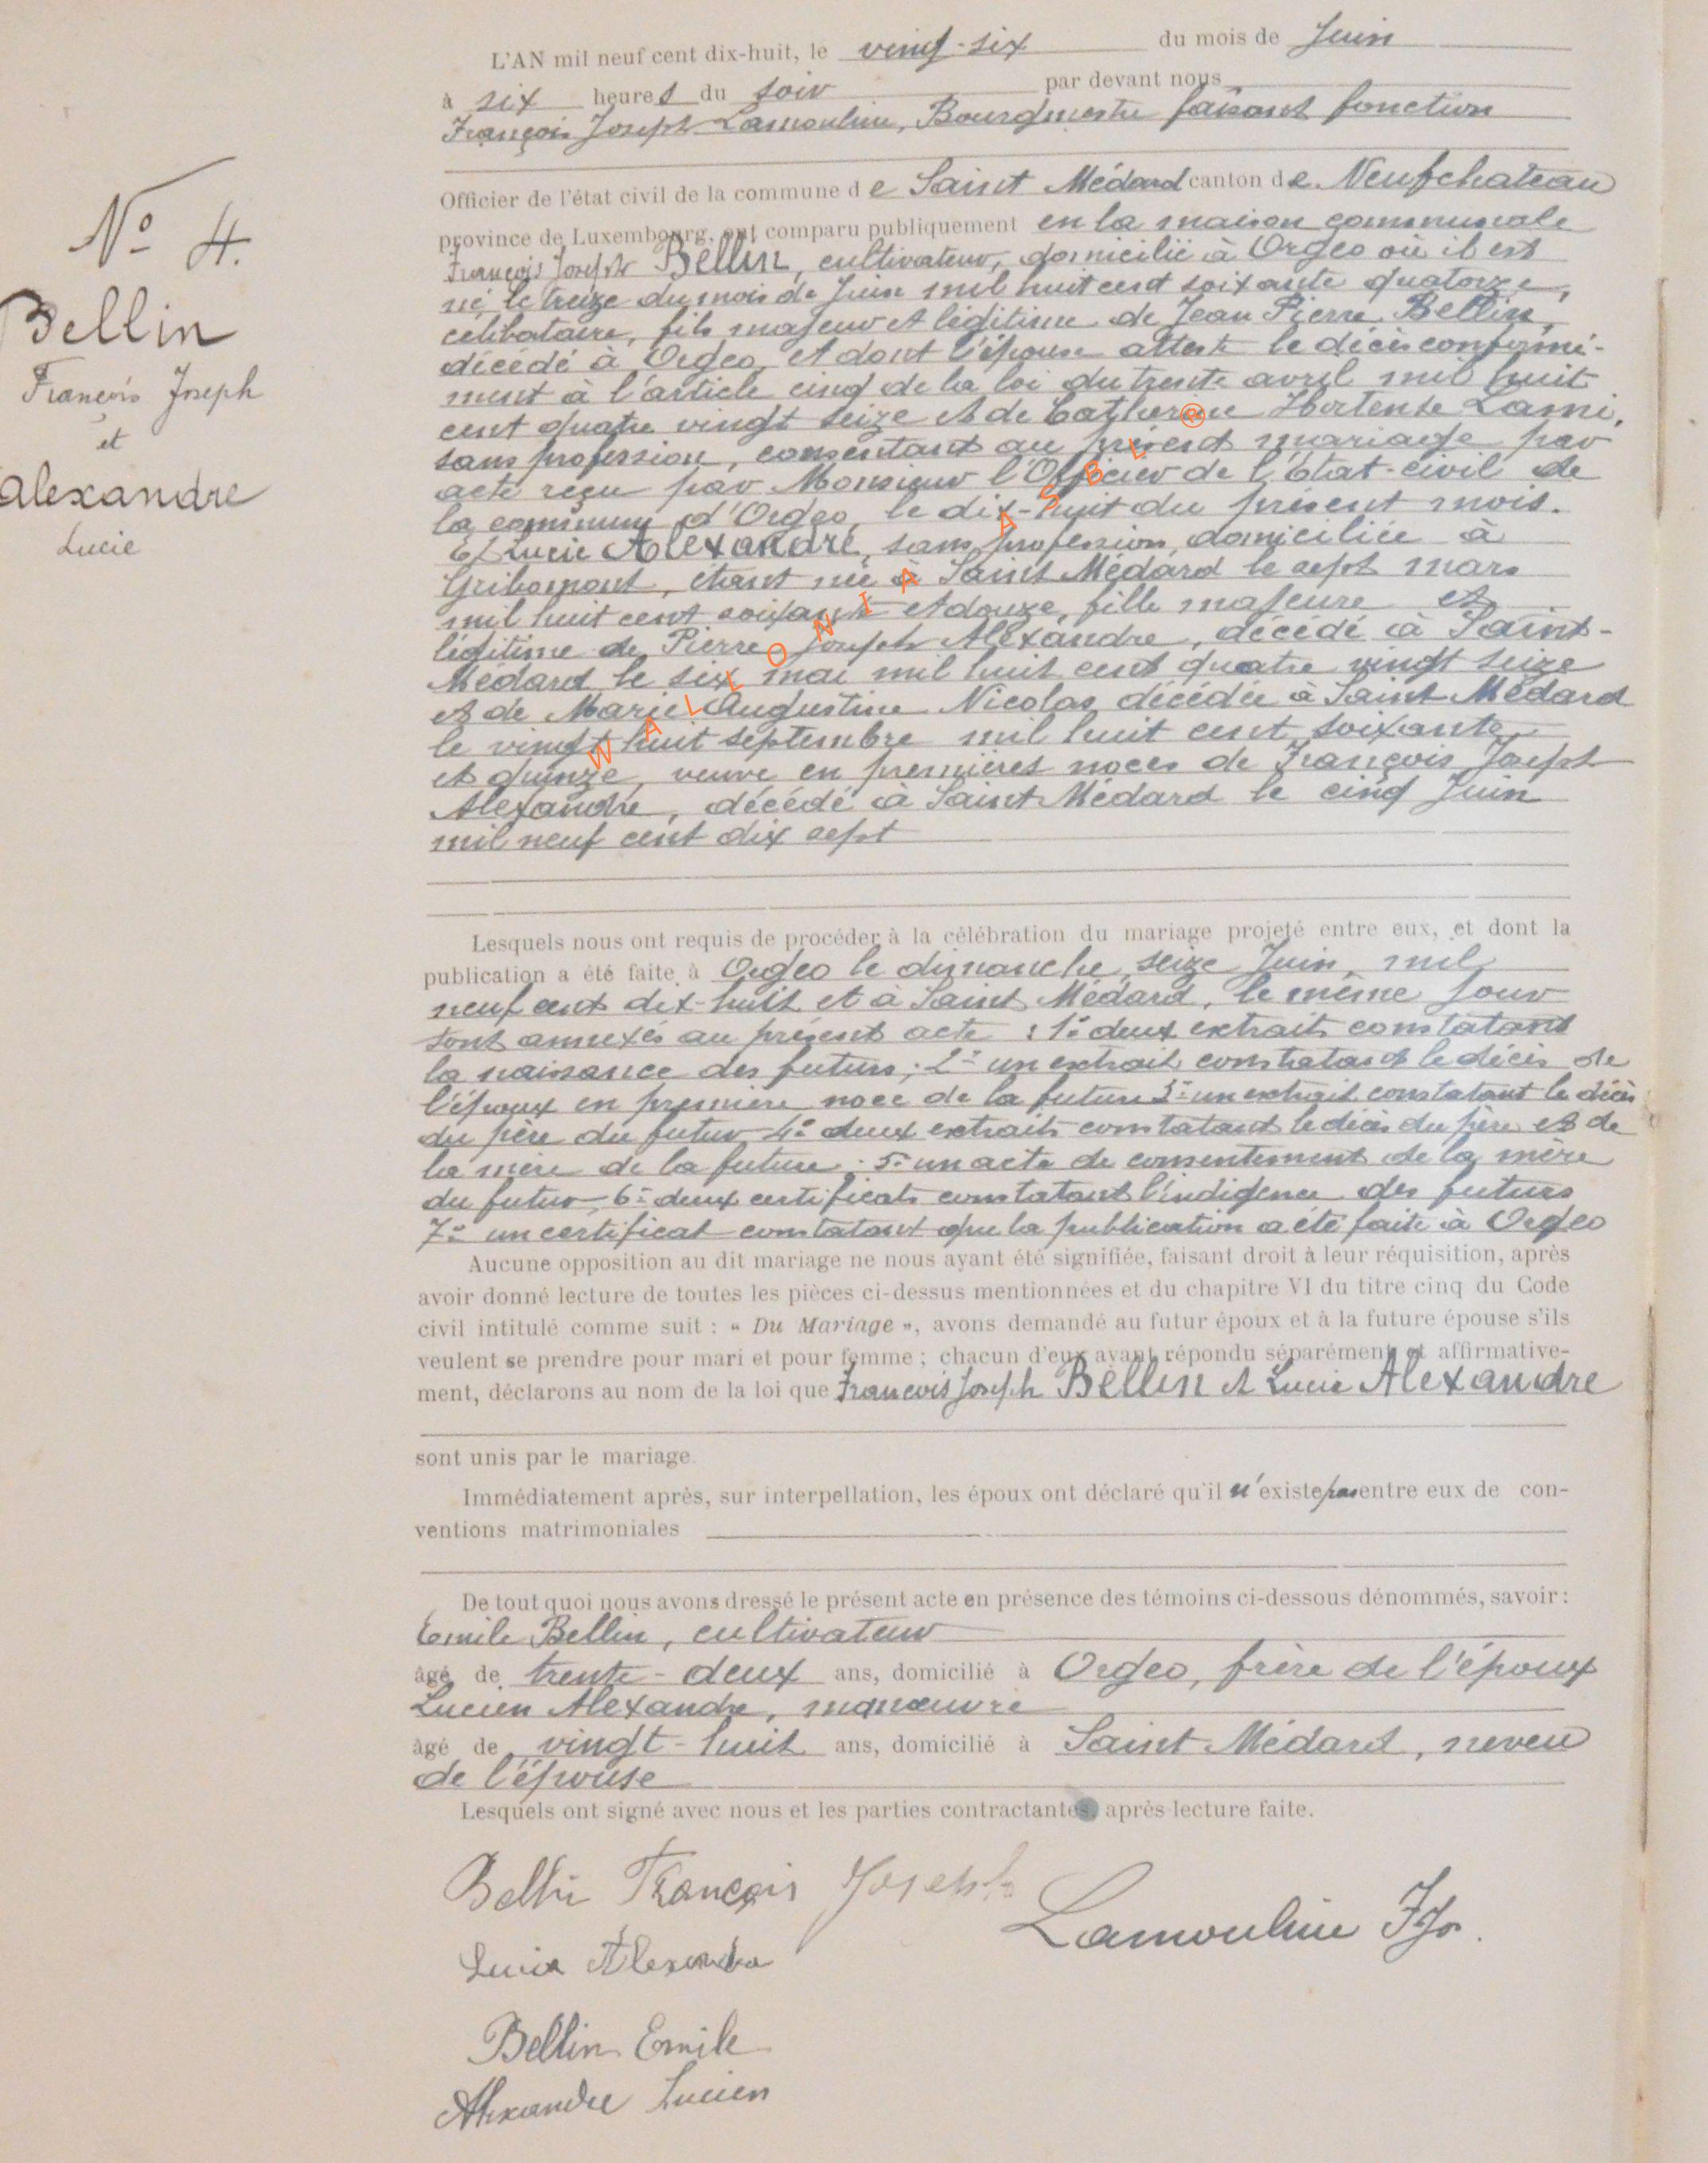 N° 4.
Bellin
François Joseph
et
Alexandre
Lucie
L'AN mil neuf cent dix-huit, le vingt-six du mois de Juin
à six heures du soir par devant nous
François Joseph Lamouline, Bourgmestre faisant fonction
Officier de l'état civil de la commune de Saint Médard canton de Neufchateau
province de Luxembourg, ont comparu publiquement en la maison communale
François Joseph Bellin, cultivateur, domicilié à Orgeo où il est
né, le treize du mois de Juin mil huit cent soixante quatorze,
célibataire, fils majeur et légitime de Jean Pierre Bellin,
décédé à Orgeo, et dont l'épouse atteste le décès conformé-
ment à l'article cinq de la loi du trente avril mil huit
cent quatre vingt seize et de Catherine Hortense Lami,
sans profession, consentant au présent mariage par
acte reçu par Monsieur l'Officier de l'Etat-civil de
la commune d'Orgeo, le dix-huit du présent mois.
Et Lucie Alexandre, sans profession, domiciliée à
Gribomont, étant née à Saint Médard le sept mars
mil huit cent soixante et douze, fille majeure et
légitime de Pierre Joseph Alexandre, décédé à Saint-
Médard le six mai mil huit cent quatre vingt seize
et de Marie Augustine Nicolas décédée à Saint Médard
le vingt huit septembre mil huit cent soixante
et quinze, veuve en premières noces de François Joseph
Alexandre, décédé à Saint Médard le cinq Juin
mil neuf cent dix sept
WALLONIA ASBL ®
Lesquels nous ont requis de procéder à la célébration du mariage projeté entre eux, et dont la
publication a été faite à Orgeo le dimanche seize Juin, mil
neuf cent dix-huit et à Saint Médard, le même jour
sont annexés au présent acte : 1° deux extraits constatant
la naissance des futurs ; 2° un extrait constatant le décès de
l'époux en première noce de la future 3° un extrait constatant le décès
du père du futur 4° deux extraits constatant le décès du père et de
la mère de la future ; 5° un acte de consentement de la mère
du futur 6° deux certificats constatant l'indigence des futurs
7° un certificat constatant que la publication a été faite à Orgeo
Aucune opposition au dit mariage ne nous ayant été signifiée, faisant droit à leur réquisition, après
avoir donné lecture de toutes les pièces ci-dessus mentionnées et du chapitre VI du titre cinq du Code
civil intitulé comme suit : « Du Mariage », avons demandé au futur époux et à la future épouse s'ils
veulent se prendre pour mari et pour femme ; chacun d'eux ayant répondu séparément et affirmative-
ment, déclarons au nom de la loi que François Joseph Bellin et Lucie Alexandre
sont unis par le mariage.
Immédiatement après, sur interpellation, les époux ont déclaré qu'il n'existe pas entre eux de con-
ventions matrimoniales
De tout quoi nous avons dressé le présent acte en présence des témoins ci-dessous dénommés, savoir :
Emile Bellin, cultivateur
âgé de trente-deux ans, domicilié à Orgeo, frère de l'époux
Lucien Alexandre, manœuvre
âgé de vingt-huit ans, domicilié à Saint Médard, neveu
de l'épouse
Lesquels ont signé avec nous et les parties contractantes, après lecture faite.
Bellin François Joseph
Lamouline FJos.
Lucie Alexandre
Bellin Emile
Alexandre Lucien